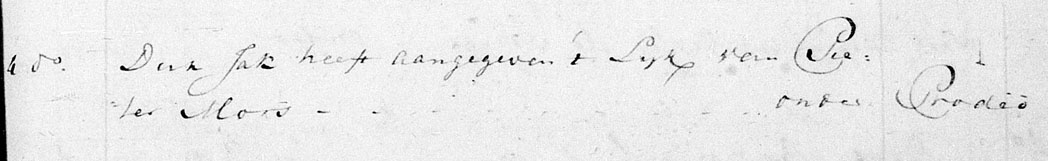 4 do. Dirk Jak heeft aangegeven 't Lijk van Pie=
ter Mors - - - - - - - onder Prodeo